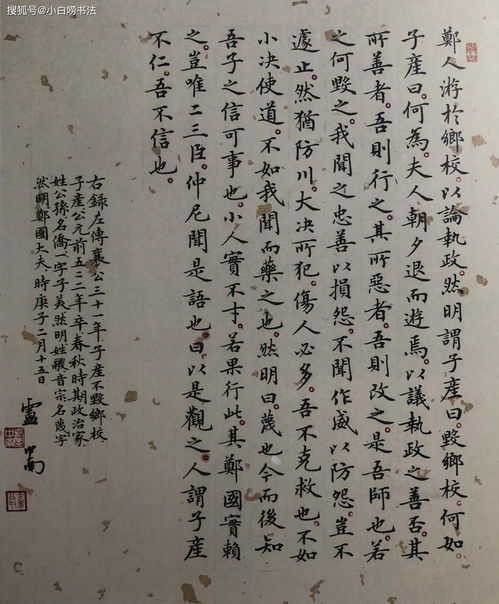 搜狐号@小白唠书法
鄭人游於鄉校。以論執政。然明謂子產曰。毁鄉校。何如。
子產曰。何為。夫人朝夕退而遊焉。以議執政之善否。其
所善者。吾則行之。其所惡者。吾則改之。是吾師也。若
之何毁之。我聞之忠善以損怨。不聞作威以防怨。豈不
遽止。然猶防川。大决所犯。傷人必多。吾不克救也。不如
小决使道。不如我聞而藥之也。然明曰。蔑也今而後知
吾子之信可事也。小人實不才。若果行此。其鄭國實賴
之。豈唯二三臣。仲尼聞是語也。曰。以是觀之。人謂子產
不仁。吾不信也。
右錄左傳襄公三十一年子產不毁鄉校
子產公元前五二二年卒春秋時期政治家
姓公孫名僑一字子美然明姓鬷音宗名蔑字
然明鄭國大夫時庚子二月十五日